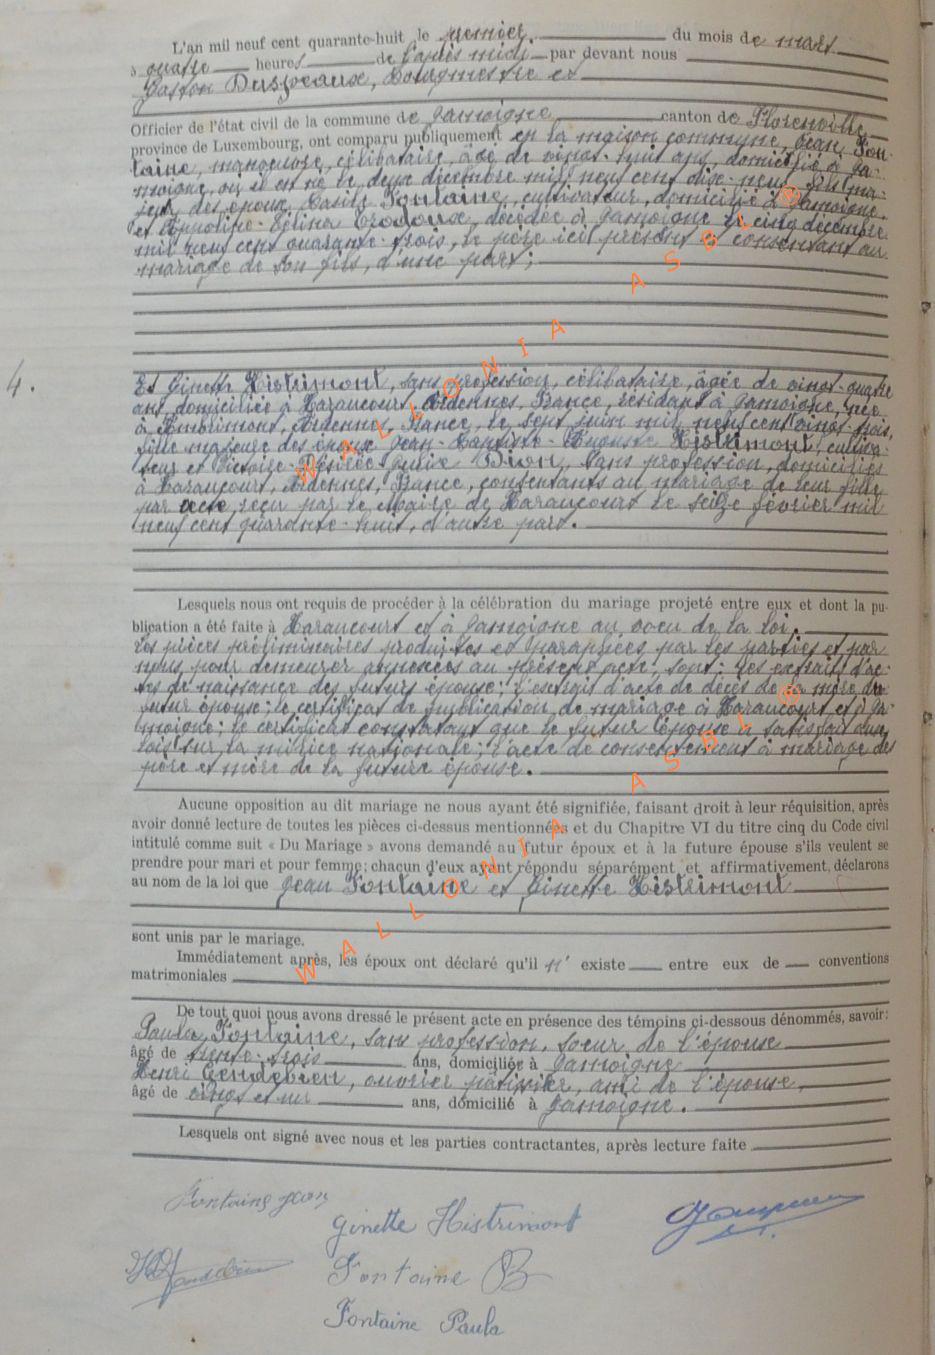 L'an mil neuf cent quarante-huit le premier du mois de mars
à quatre heures de l'après midi par devant nous
Gaston Bourgmestre et
Officier de l'état civil de la commune de Jamoigne canton de Florenville
province de Luxembourg, ont comparu publiquement en la maison commune, Jean Fon-
taine, manoeuvre, célibataire, âgé de vingt-huit ans, domicilié à Ja-
moigne, où il en né le deux décembre mil neuf cent dix-neuf, fils ma-
jeur des époux Fontaine, cultivateur, domicilié à Jamoigne,
et décédée à Jamoigne le cinq décembre
mil neuf cent quarante-trois, le père ici présent et consentant au
mariage de son fils, d'une part;
4.
Et Ginette Histrimont, sans profession, célibataire, âgée de vingt-quatre
ans, domiciliée à Haraucourt, Ardennes, France, résidant à Jamoigne, née
à Ardennes, France, le sept juin mil neuf cent vingt-trois,
fille majeure des époux Jean-Baptiste-Auguste Histrimont, cultiva-
teur et Victoire-Désirée Dion, sans profession, domiciliés
à Haraucourt, Ardennes, France, consentants au mariage de leur fille
par acte reçu par le Maire de Haraucourt le seize février mil
neuf cent quarante-huit, d'autre part.
Lesquels nous ont requis de procéder à la célébration du mariage projeté entre eux et dont la pu-
blication a été faite à Haraucourt et à Jamoigne au voeu de la loi.
Les pièces préliminaires produites et paraphées par les parties et par
nous, pour demeurer annexées au présent acte, sont: les extraits d'ac-
tes de naissance des futurs époux; l'extrait d'acte de décès de la mère du
futur époux; le certificat de publication de mariage à Haraucourt et à Ja-
moigne; le certificat constatant que le futur époux a satisfait aux
lois sur la milice nationale; l'acte de consentement à mariage des
père et mère de la future épouse.
Aucune opposition au dit mariage ne nous ayant été signifiée, faisant droit à leur réquisition, après
avoir donné lecture de toutes les pièces ci-dessus mentionnées et du Chapitre VI du titre cinq du Code civil
intitulé comme suit « Du Mariage » avons demandé au futur époux et à la future épouse s'ils veulent se
prendre pour mari et pour femme; chacun d'eux ayant répondu séparément et affirmativement, déclarons
au nom de la loi que Jean Fontaine et Ginette Histrimont
sont unis par le mariage.
Immédiatement après, les époux ont déclaré qu'il n' existe entre eux de conventions
matrimoniales
De tout quoi nous avons dressé le présent acte en présence des témoins ci-dessous dénommés, savoir:
Paula Fontaine, sans profession, soeur de l'épouse
âgé de trente-trois ans, domiciliée à Jamoigne
Henri Gendebien, ouvrier pâtissier, ami de l'épouse,
âgé de vingt et un ans, domicilié à Jamoigne.
Lesquels ont signé avec nous et les parties contractantes, après lecture faite
Fontaine Jean
Ginette Histrimont
Fontaine B
Fontaine Paula
WALLONIA ASBL ®
WALLONIA ASBL ®